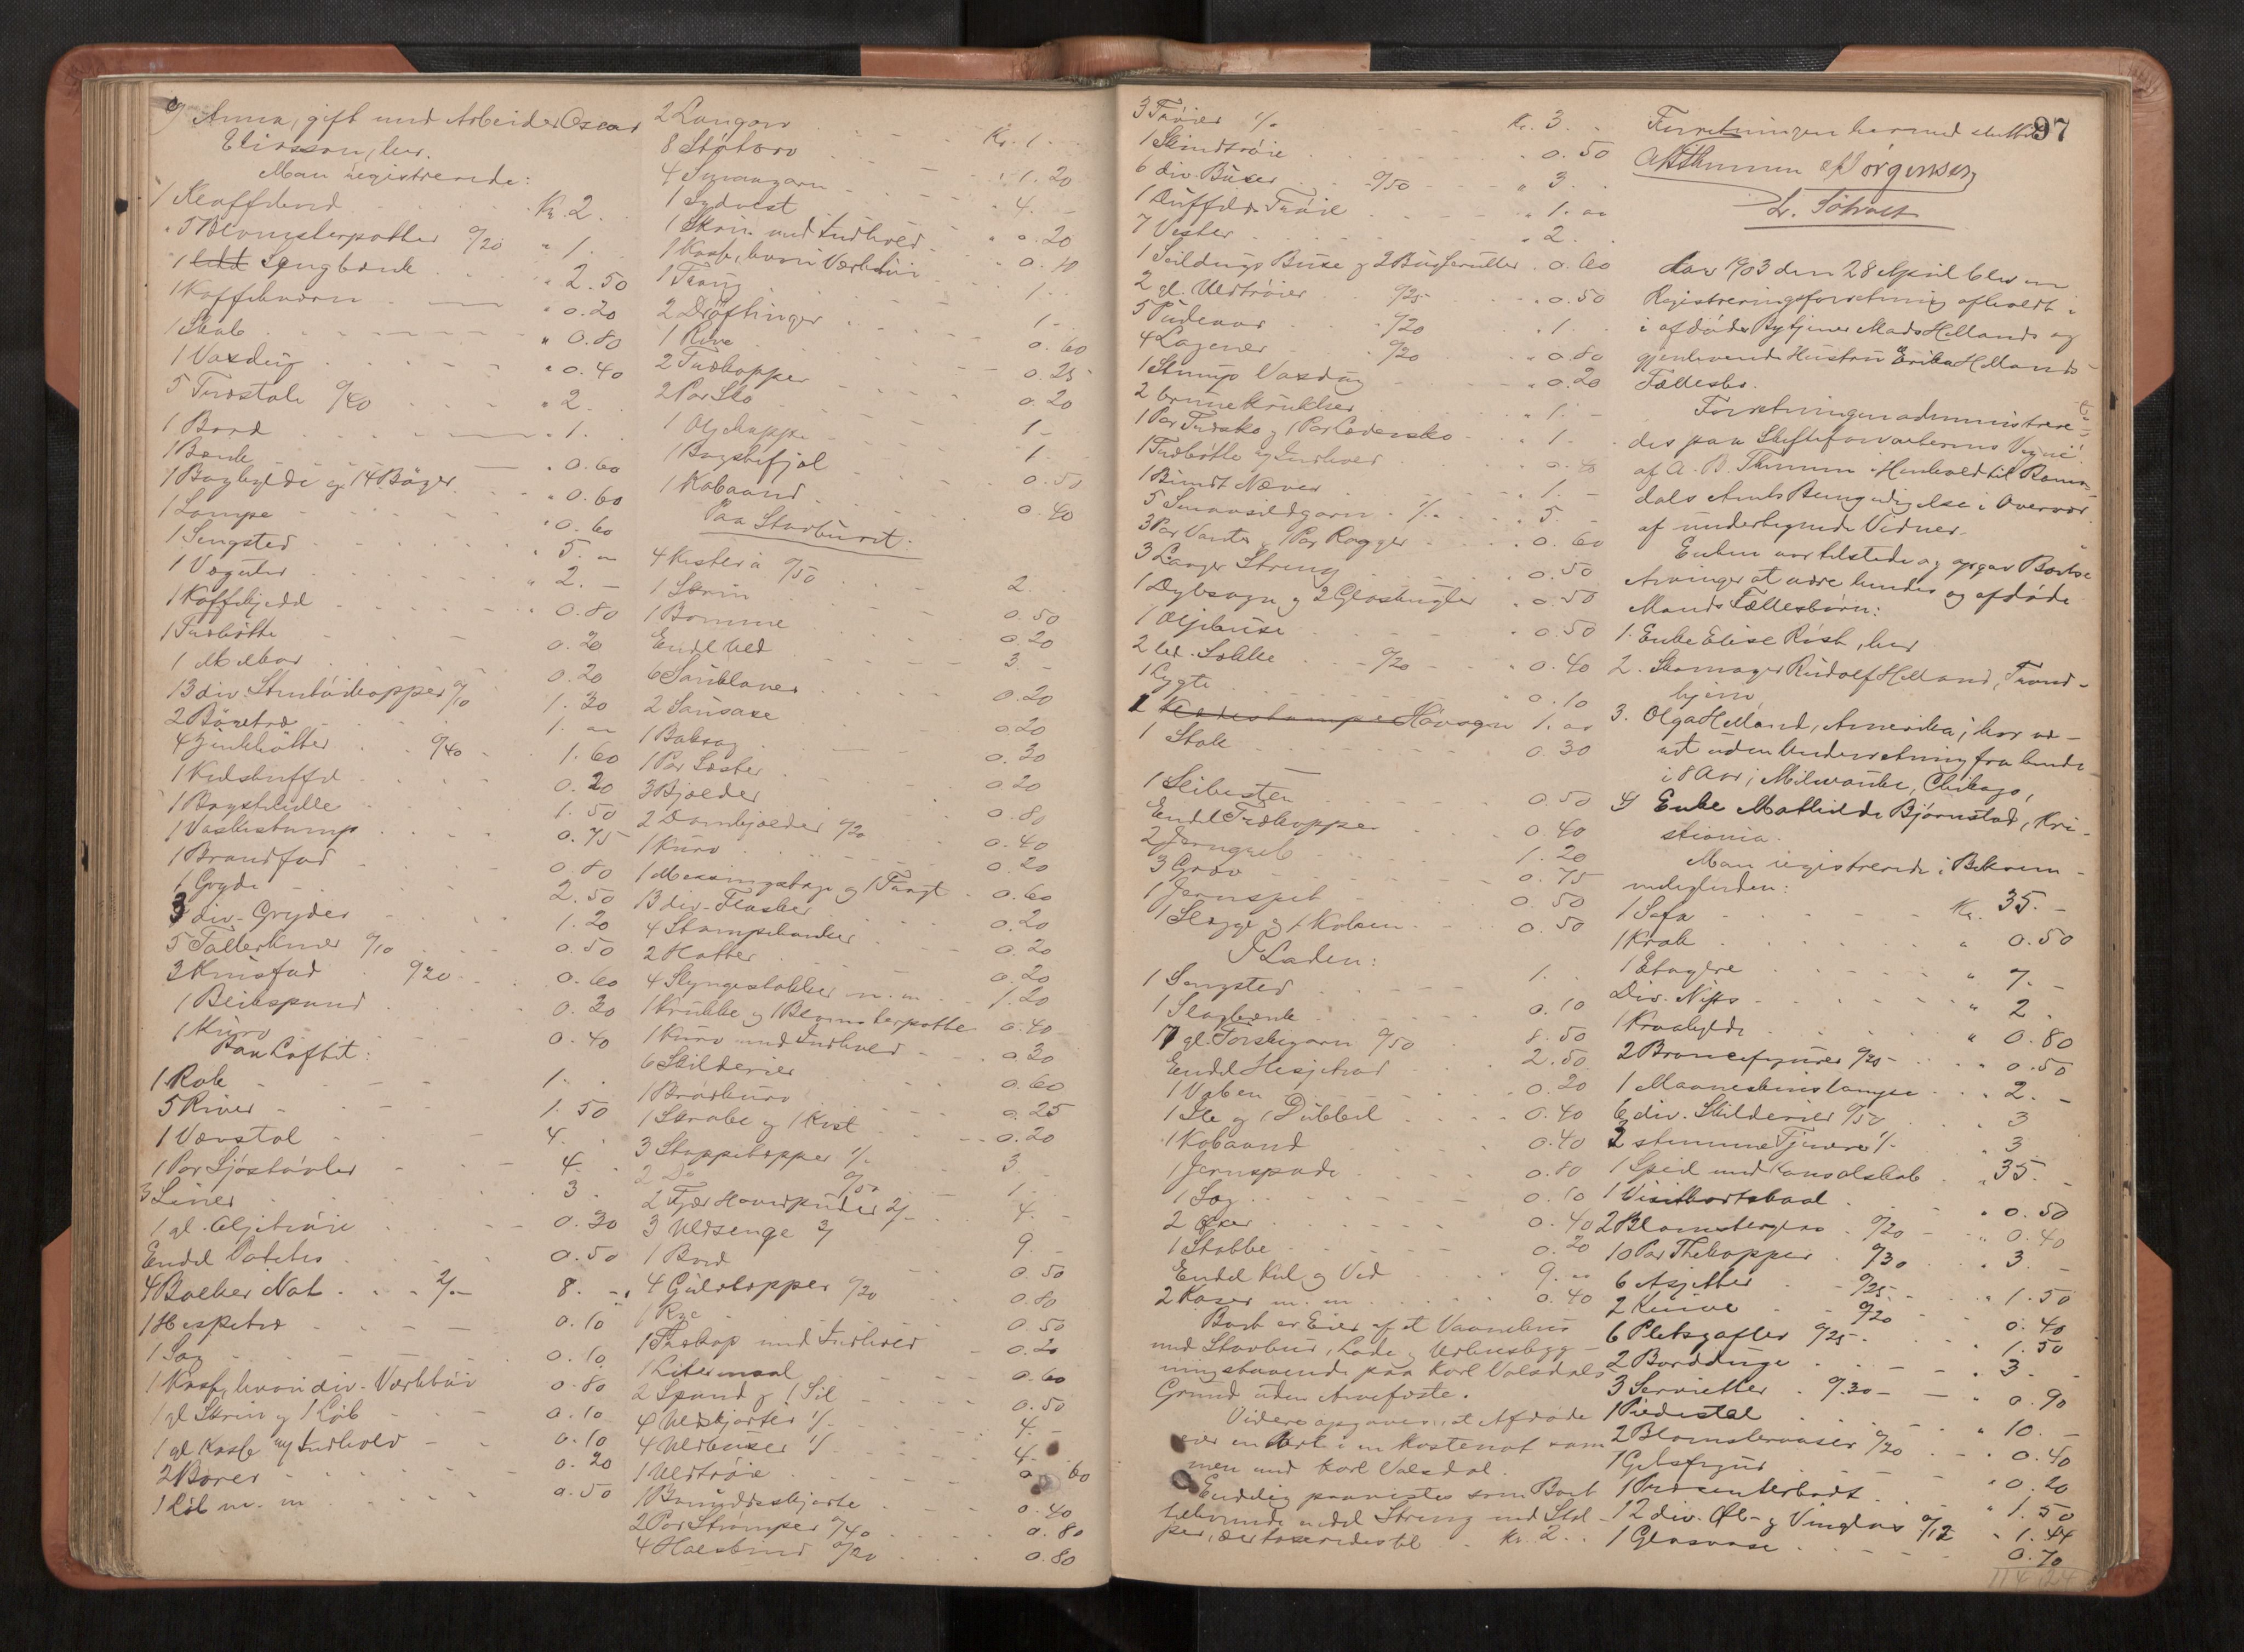 9 Anna, gift med Arbeider Oscar
Eliassen, her.
Man registrerede:
1 Kaffebord Kr. 2.
5 Blomsterpotter 0/20 " 1.
1 Sengbænk " 2.50
1 Kaffekværn " 0.20
1 Skab " 0.80
1 Voxdug " 0.40
5 Træstole 0/40 " 2.
1 Bord " 1.
1 Bænk " 0.60
1 Boghylde og 14 Bøger " 0.60
1 Lampe " 0.60
1 Sengsted " 5. "
1 Væguhr " 2. -
1 Kaffekjedel 0.80
1 Træbøtte 0.20
1 0.20
13 div. Stentøikopper 0/10 1.30
2 Børetræ 1. "
4 Zinkbøtter 0/40 1.60
1 0.20
1 Bagstehelle 1.50
1 Vaskestamp 0.75
1 Brandfad 0.80
1 Gryde 2.50
3 div. Gryder 1.20
5 Tallerkener 0/10 0.50
3 0/20 0.60
1 0.30
1 Kurv 0.40
Paa Loftet:
1 Rok 1.
5 River 1.50
1 Vævstol 4.
1 Par Sjøstøvler 4.
3 Liner 3.
1 gl. Oljetrøie 0.30
Endel 0.50
4 Bolker Not 2/- 8. -
1 Hespetræ 0.10
1 Sag 0.10
1 Kasse, hvori div. Værktøi 0.80
1 gl Skrin og 1 Løb 0.10
1 gl Kasse og Indhold 0.10
2 Borer 0.20
1 Løb m. m 0.50
2 Langorv Kr. 1.
8 Støtorv " 1.20
4 Smaagarn " 4. -
1 Sydvest " 0.20
1 Skrin med Indhold " 0.40
1 Kasse, hvori Værktøi 1.
1 Traug 1.
2 Drøftinger 0.60
1 Rive 0.25
2 Trækopper 0.20
2 Par Sko 1 -
1 1
1 Bagstefjøl 0.50
1 Kobaand 0.40
Paa Stavburet:
4 Kister á 0/50 2.
1 Skrin 0.50
1 Bomme 0.20
Endel Ved 3. -
6 0.20
2 Sausaxe 0.20
1 Baksag 0.30
1 Par Læster 0.20
3 Bjælder 0.80
2 0/20 0.40
1 Kurv 0.20
1 og 1 0.60
13 div. Flasker 0.20
4 0.20
2 Hatter 0.20
4 Slyngestokker m. m. 1.20
1 Krukke og 1 Blomsterpotte 0.40
1 Kurv med Indhold 0.30
6 Skilderier 0.60
1 Brødkurv 0.25
1 Skrabe og 1 Kost 0.20
3 Stoppetæpper 1/- 3. -
2 Do 0/50 1. -
2 Fjær Hovedpuder 2/- 4. -
3 Uldsenge 3/ 9. -
1 Bord 0.50
4 Gulvtæpper 0/20 0.80
1 Rye 0.50
1 med Indhold 0.20
1 Litermaal 0.60
2 Spand og 1 Sil 0.50
4 Uldskjorter 1/- 4. -
4 Uldbuxer 1/ 4.
1 Uldtrøie 0.60
1 Bomuldsskjorte 0.40
2 Par Strømper 0/40 0.80
4 Halsbind 0/20 0.80
97
3 Trøier 1/- Kr. 3. -
1 Skindtrøie " 0.50
6 div. Buxer 0/50 " 3.
1 Duffels Trøie " 1. "
7 Vester " 2.
1 Seildugs Buxe og 2 0.60
2 gl. Uldtrøier 0/25 " 0.50
5 Pudevar 0/20 " 1.
4 Lagener 0/20 " 0.80
1 Stump Voxdug " 0.20
2 brune Krukker " 1. -
1 Par Træsko og 1 Par Lædersko " 1.
1 Træbøtte og Indhold 0.40
1 Bundt Næver 1. -
5 Smaasildgarn 1/- 5. -
3 Par Vanter, 1 Par Ragger 0.60
3 Længer Streng 0.50
1 Dybsagn og 2 Glaskugler 0.50
1 Oljebuxe 0.50
2 Sække 0/20 0.40
1 Lygte 0.10
1 Høvogn 1. "
1 Stok 0.30
1 Slibesten 0.50
Endel Trækopper 0.40
2 Jerngreb 1.20
3 Grev 0.75
1 Jernspet 0.50
1 Slægge og 1 0.50
I Laden:
1 Sengsted 1.
1 Slagbænk 0.10
17 gl. Torskegarn 0/50 8.50
Endel Hesjetraad 2.50
1 Vaben 0.20
1 Sle og 1 Dubbel 0.40
1 Kobaand 0.40
1 Jernspade 0.80
1 Sag 0.10
2 Øxer 0.40
1 Stabbe 0.20
Endel Kul og Ved 9. "
2 Kaser m. m 0.40
Boet er Eier af et Vaanehus
med Stavbur, Lade og Udhusbyg-
ning staaende paa Karl Valsdals
Grund uden Arvefæste.
Videre opgaves, at Afdøde
eier en Part i en Kastenot sam-
men med Karl Valsdal.
Endelig paavistes som Boet
tilhørende endel Streng med Stol-
per, der taxeredes til Kr. 2.
Forretningen hermed sluttet.
A B Thumm O Jørgensen
L. Solvolt
Aar 1903 den 28 April blev en
Registreringsforretning afholdt i
i afdøde Bytjener Mads Hellands og
gjenlevende Hustru Erika Hellands
Fællesbo.
Forretningen administrere-
des paa Skifteforvalterens Vegne
af A. B. Thumm i Henhold til Roms-
dals Amts Bemyndigelse i Overvær
af undertegnede Vidner.
Enken var tilstede og opgav Boets
Arvinger at være hendes og afdøde
Mands Fællesbørn:
1. Enke Elise Rish, her
2. Skomager Rudolf Helland, Trond-
hjem,
3. Olga Helland, Amerika; har væ-
ret uden Underretning fra hende
i 8 Aar; Milwauke, Chikago,
4) Enke Mathilde Bjørnstad, Kri-
stiania.
Man registrerede i Bekvem-
meligheden:
1 Sofa Kr. 35. -
1 Krak " 0.50
1 Etagere " 7. -
Div. Nips " 2.
1 Kroghylde " 0.80
2 Broncefigurer 0/25 " 0.50
1 Maaneskinslampe " 2. -
6 div. Skilderier 0/50 " 3
3 stumme Tjenere 1/- " 3
1 Speil med Konsolskab " 35. -
1 Visitkortskaal " 0.50
2 Blomsterglas 0/20 " 0.40
10 Par Thekopper 0/30 " 3. -
6 Asjetter 0/25 " 1.50
2 Knive 0/20 0.40
6 Pletgafler 0/25 " 1.50
2 Borddüge " 3. -
3 Servietter 0/30 - " 0.90
1 Piedestal " 10. -
2 Blomstervaser 0/20 " 0.40
1 Gibsfigur " 0.20
1 Præsenterbrdt " 1.50
12 div. Øl- og Vinglas 0/12 " 1.44
1 Glasvase 0.70
114.24